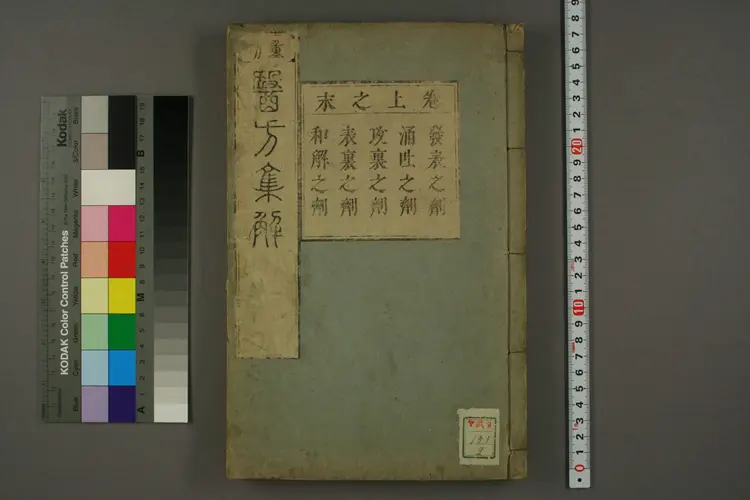 醫方集解
卷上之末
發表之劑
涌吐之劑
攻裏之劑
表裏之劑
和解之劑
Kodak
KODAK Color Control Patches
Blue
Cyan
Green
Yellow
Red
Magenta
White
3/Color
Black
A 1 2 3 4 5 6 7 M 8 9 10 11 12 13 14 15 B 16 17 18 19
0 1 2 3 4 5 6 7 8 9 10 1 2 3 4 5 6 7 8 9 20 1 2 3 4 5 6 7 8 9